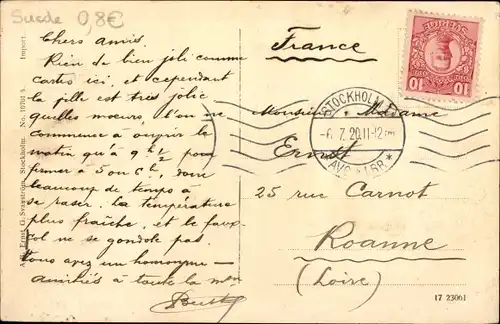 Suede 0,8€
Chers amis.
Rien de bien joli comme
cartes ici, et cependant
la fille est très jolie
quelles moeurs, l'on ne
commence à ouvrir le
matin qu'à 9h ½ pour
fermer à 5 ou 6h, donc
beaucoup de temps à
se raser. La température
plus fraîche, et le faux-
col ne se gondole pas.
Vous avez un homonyme
amitiés à toute la
France
Monsieur Madame
Ernst
25 rue Carnot
Roanne
(Loire)
STOCKHOLM 1
-6.7.20.11-12
AVG.
SVERIGE
10 10
Ernst G. Svanström, Stockholm. No. Import.
17 23061